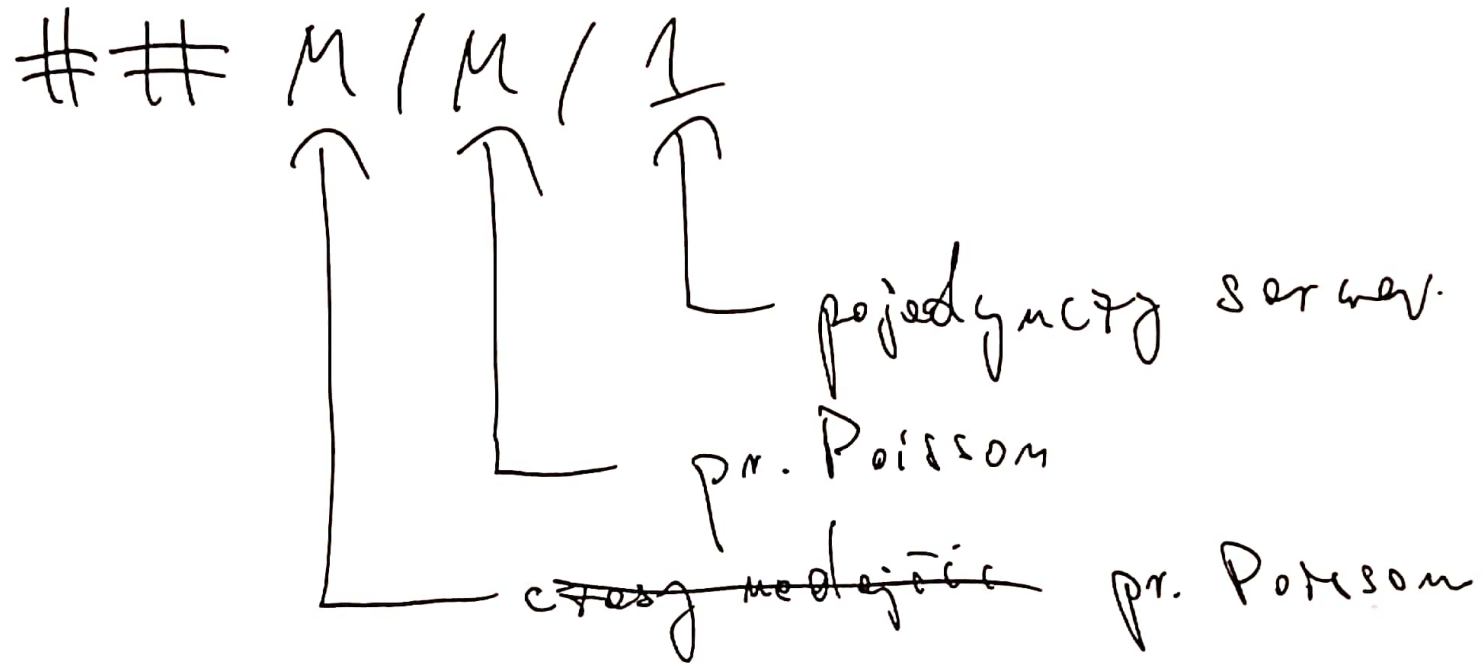 ## M / M / 1
pojedynczy serwer.
pr. Poisson
czasy nadejścia pr. Poisson